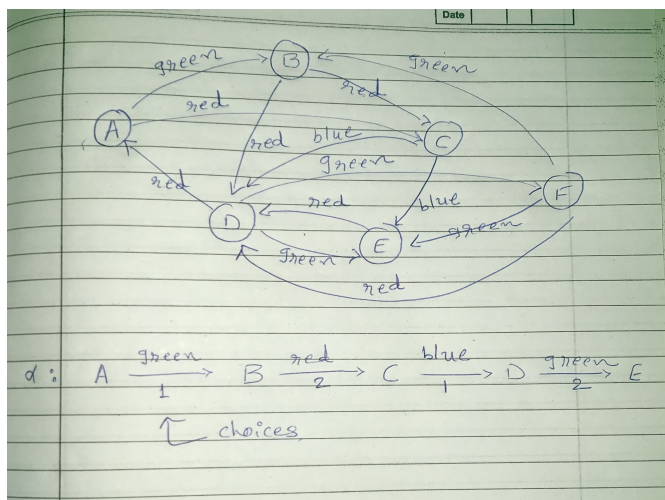 Date
B
green
green
red
red
A
C
red
blue
green
red
F
red
blue
D
E
green
green
red
α : A green 1 → B red 2 → C blue 1 → D green 2 → E
choices